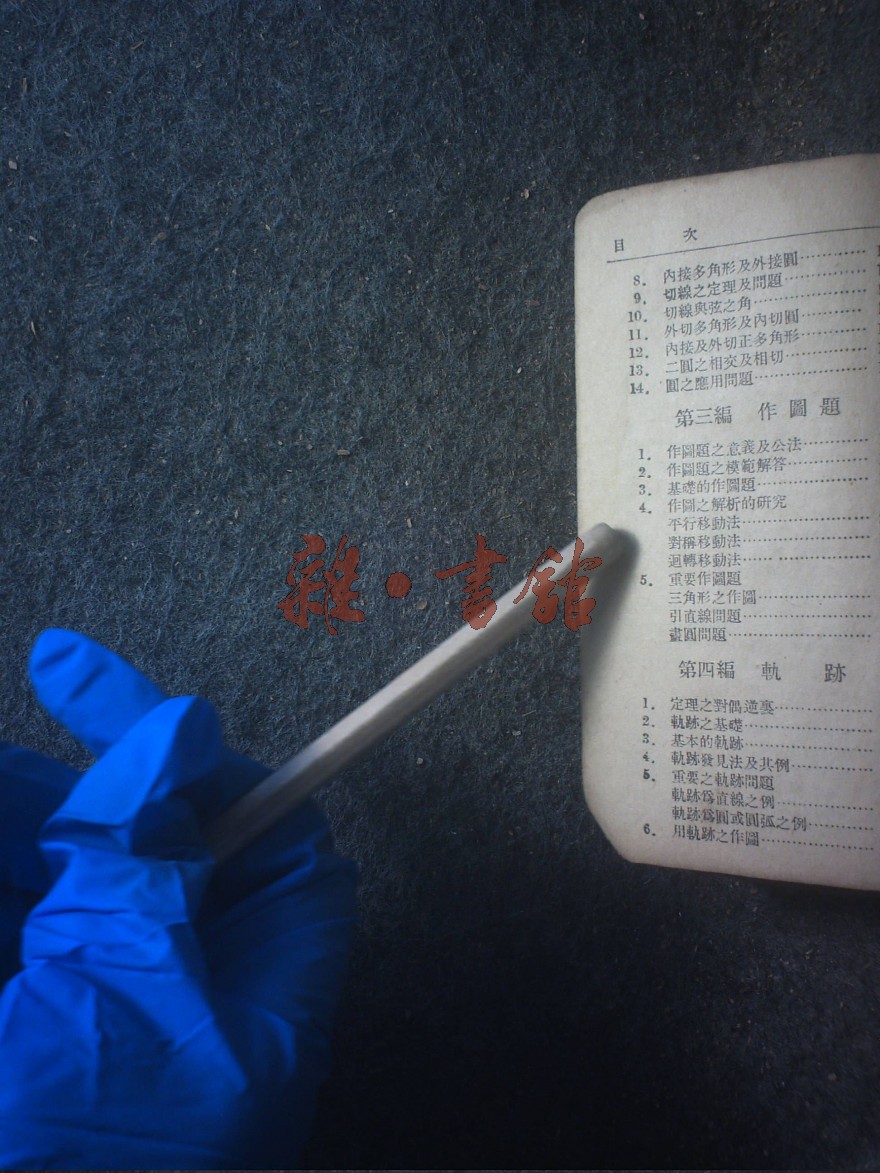 目 次
8. 內接多角形及外接圓
9. 切線之定理及問題
10. 切線與弦之角
11. 外切多角形及內切圓
12. 內接及外切正多角形
13. 二圓之相交及相切
14. 圓之應用問題
第三編 作圖題
1. 作圖題之意義及公法
2. 作圖題之模範解答
3. 基礎的作圖題
4. 作圖之解析的研究
平行移動法
對稱移動法
迴轉移動法
5. 重要作圖題
三角形之作圖
引直線問題
畫圓問題
第四編 軌 跡
1. 定理之對偶逆裏
2. 軌跡之基礎
3. 基本的軌跡
4. 軌跡發見法及其例
5. 重要之軌跡問題
軌跡爲直線之例
軌跡爲圓或圓弧之例
6. 用軌跡之作圖
雜·書館